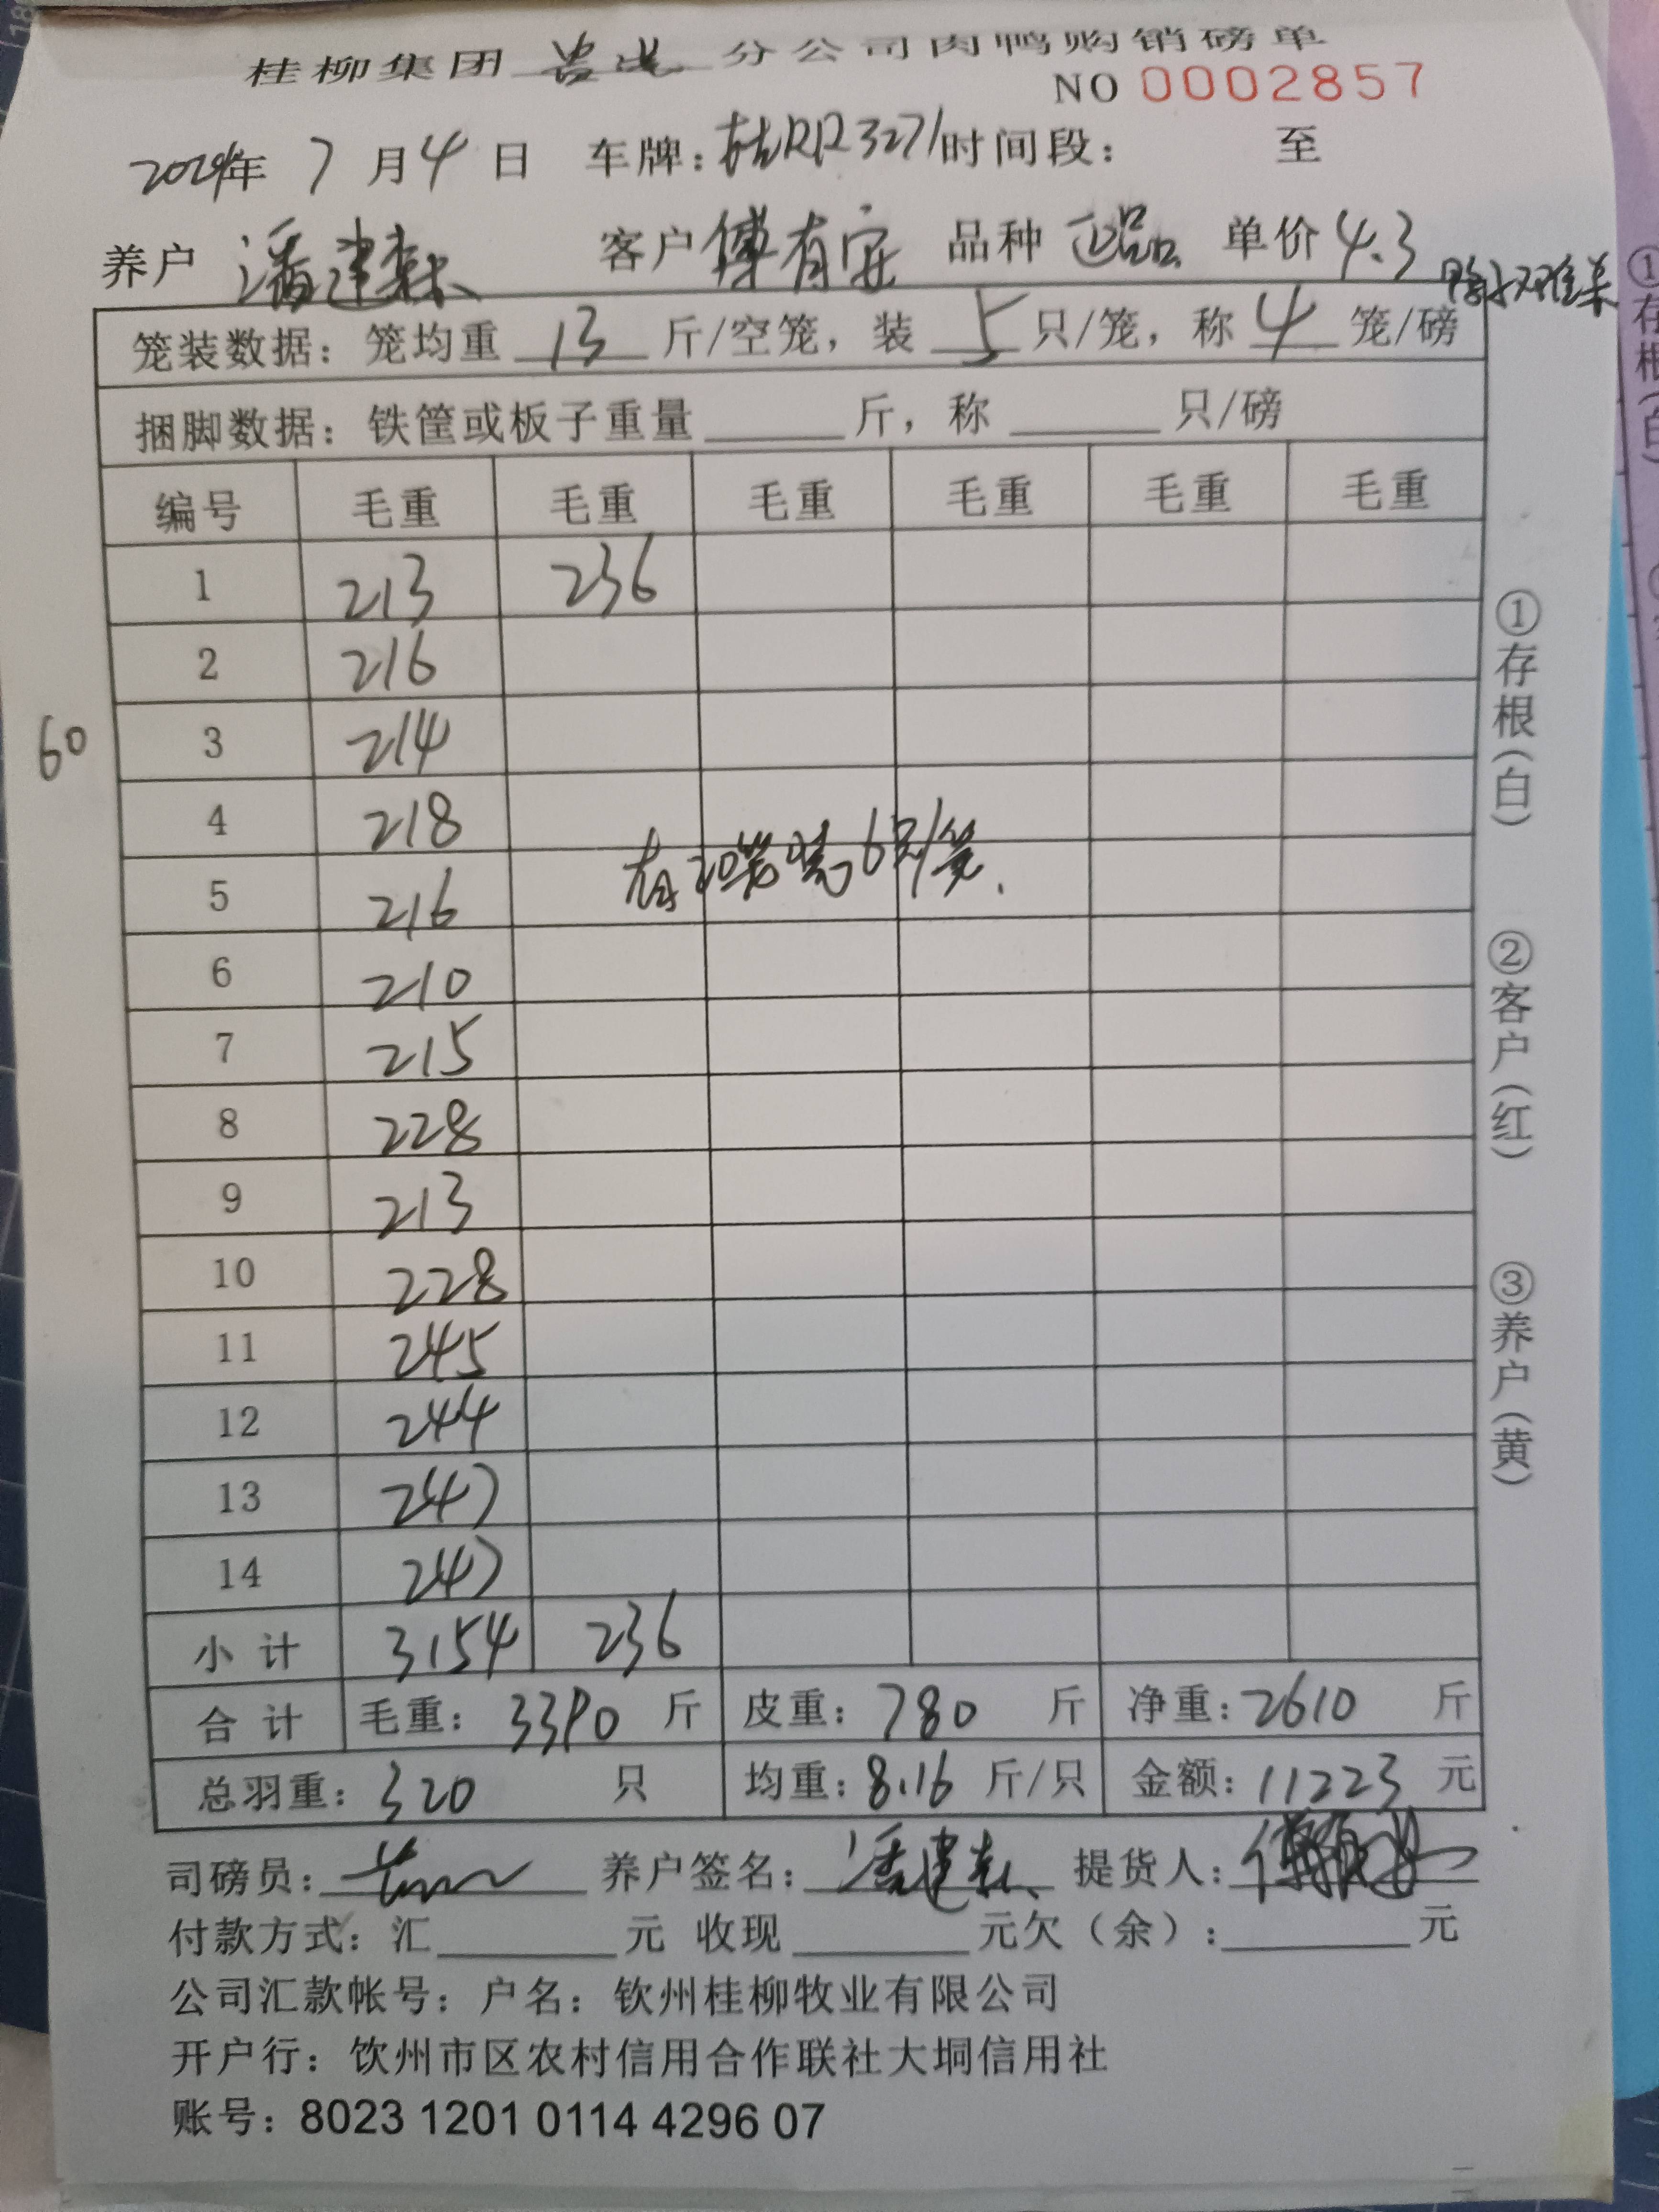 桂柳集团 分公司肉鸭购销磅单
NO 0002857
2024年 7月4日 车牌: 桂RR3271 时间段: 至
养户 潘建森 客户 傅有安 品种 正品 单价 4.3
笼装数据: 笼均重 13 斤/空笼, 装 5 只/笼, 称 4 笼/磅
捆脚数据: 铁筐或板子重量 斤, 称 只/磅
编号 毛重 毛重 毛重 毛重 毛重 毛重
1 213 236
2 216
60
3 214
4 218
有20笼装6只/笼.
5 216
6 210
7 215
8 228
9 213
10 228
11 245
12 244
13 247
14 247
小计 3154 236
合计 毛重: 3390 斤 皮重: 780 斤 净重: 2610 斤
总羽重: 320 只 均重: 8.16 斤/只 金额: 11223 元
司磅员: 养户签名: 潘建森 提货人:
付款方式: 汇 元 收现 元欠(余): 元
公司汇款帐号: 户名: 钦州桂柳牧业有限公司
开户行: 钦州市区农村信用合作联社大垌信用社
账号: 8023 1201 0114 4296 07
①存根(白) ②客户(红) ③养户(黄)
①存根(白)